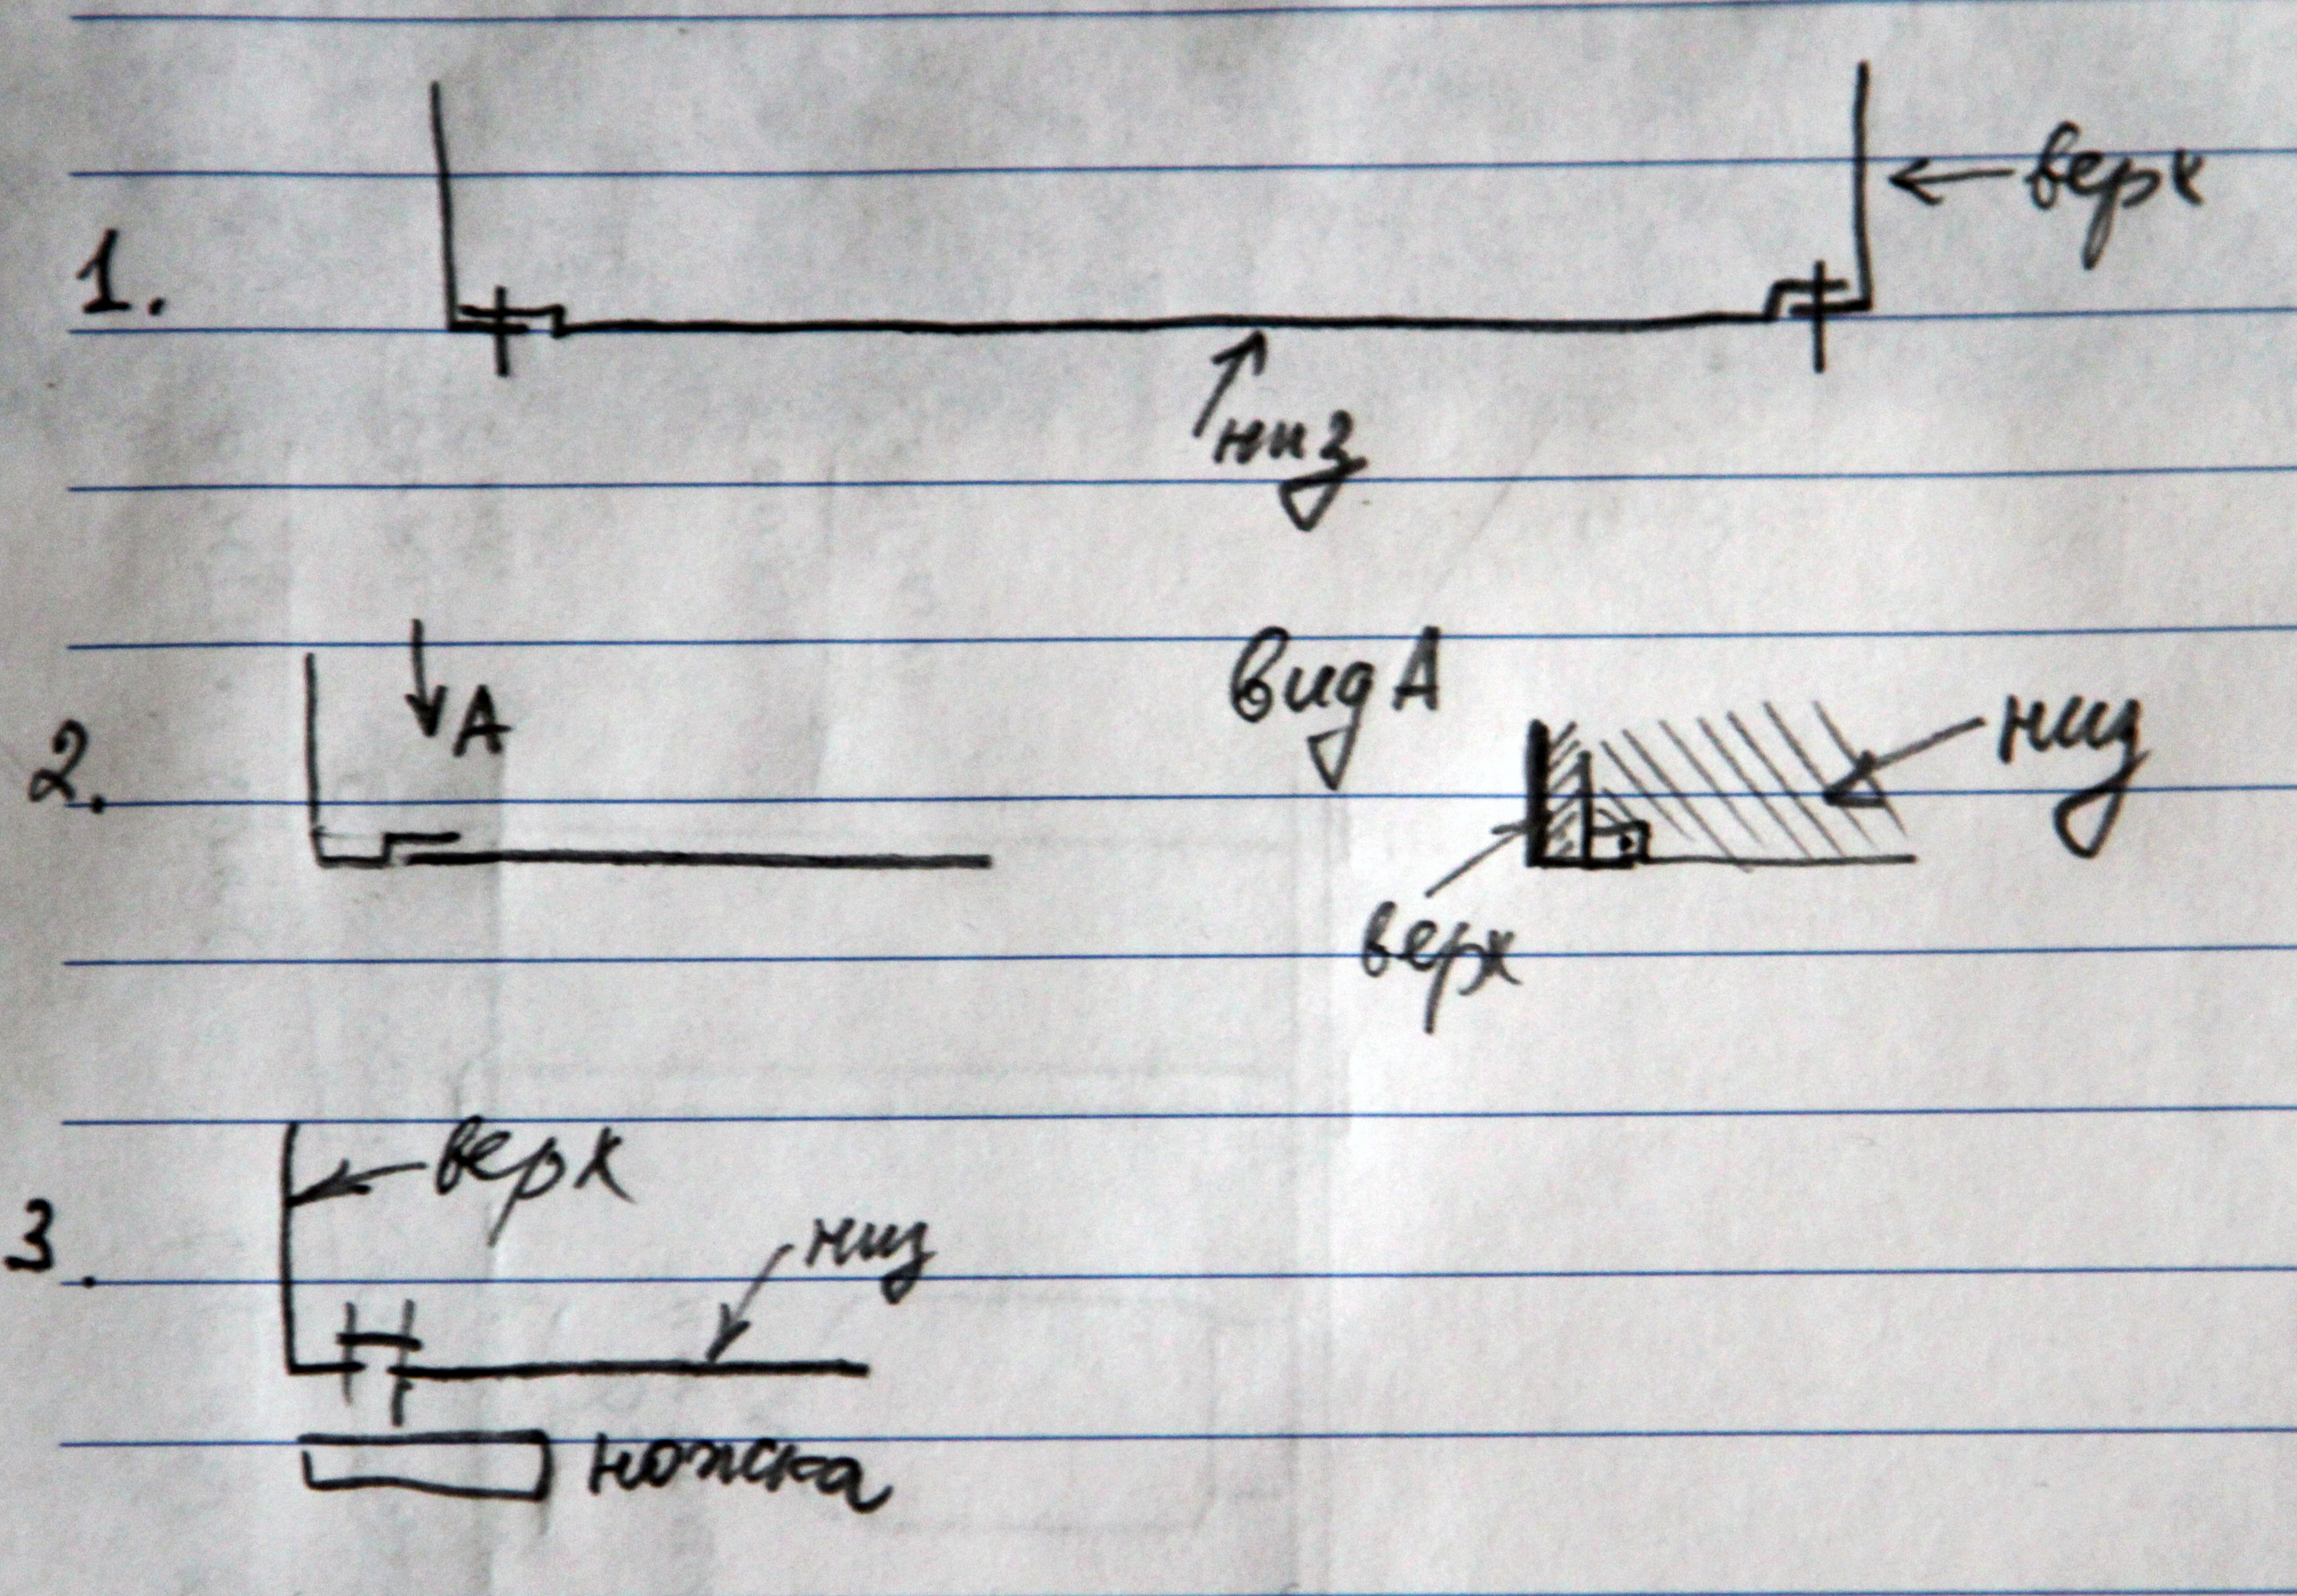 1.
← верх
низ
2.
A
вид A
низ
верх
3.
верх
низ
ножка